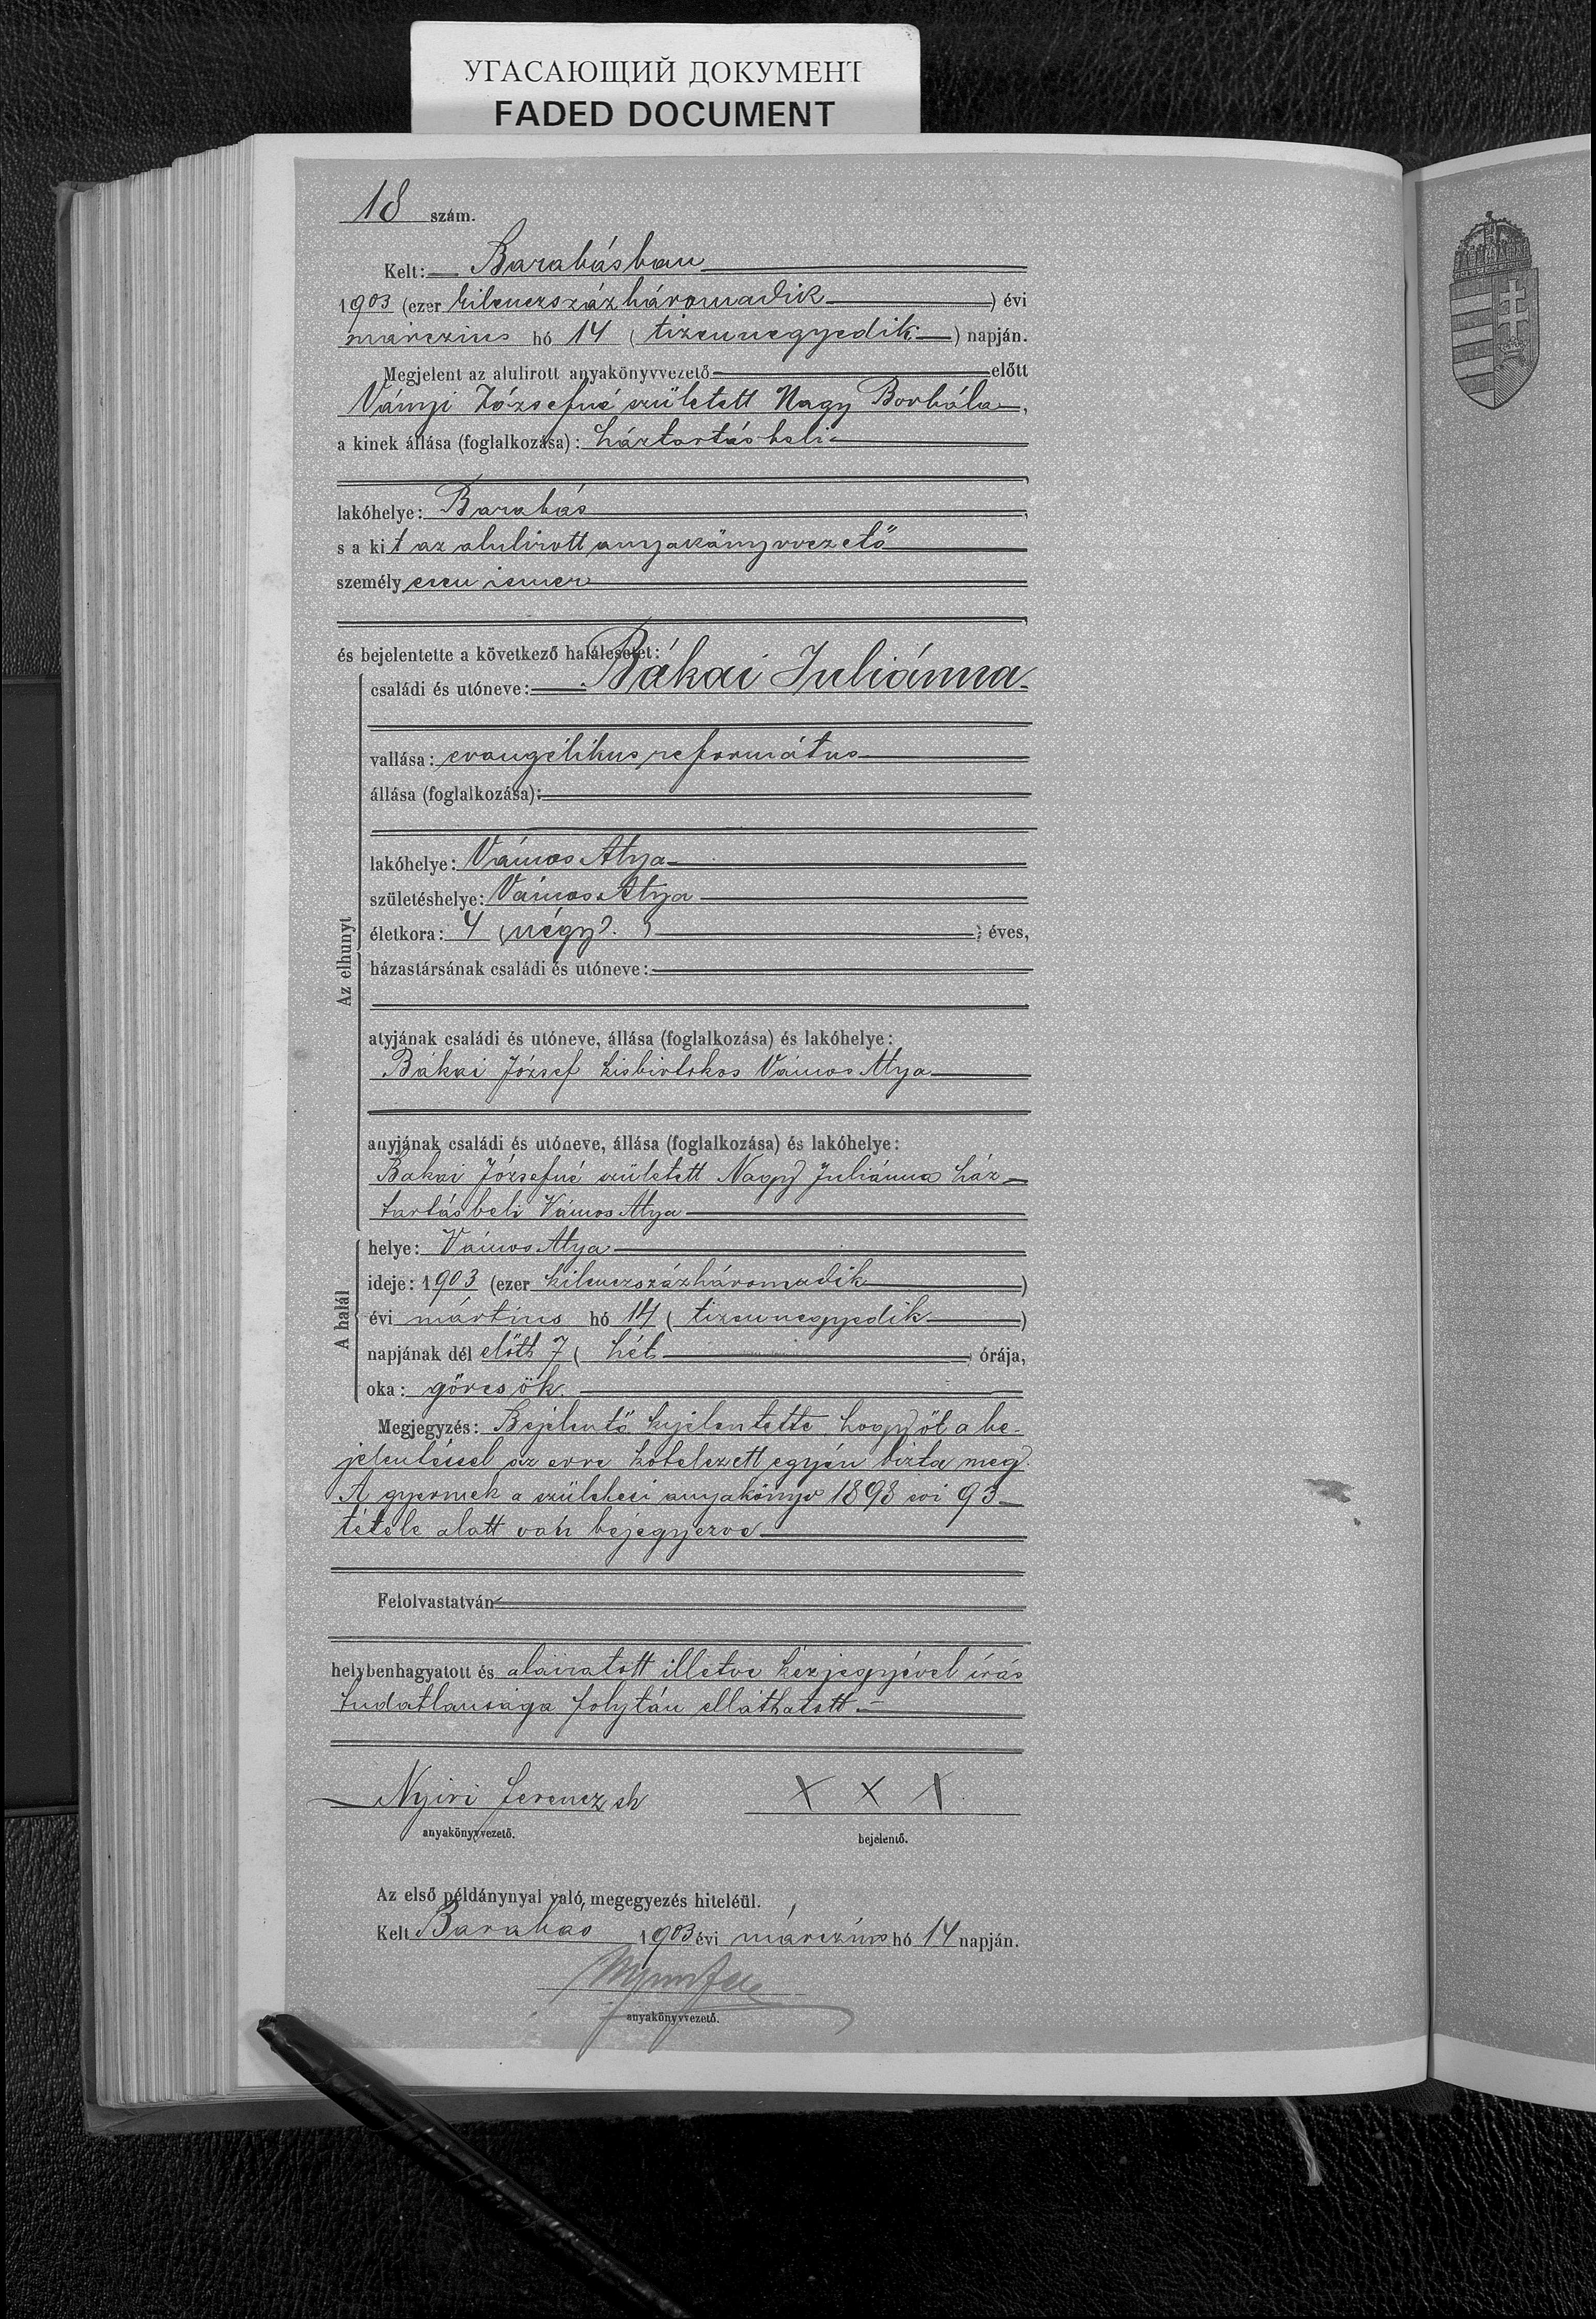 УГАСАЮЩИЙ ДОКУМЕНТ
FADED DOCUMENT
18 szám.
Kelt: Barabásban
1903 (ezer kilenczszázháromadik ) évi
márczius hó 14 ( tizennegyedik ) napján.
Megjelent az alulirott anyakönyvvezető előtt
Ványi Józsefné született Nagy Borbála,
a kinek állása (foglalkozása): háztartásbeli
lakóhelye: Barabás
s a kit az alulirott anyakönyvvezető
személyesen ismer
és bejelentette a következő halálesetet:
Az elhunyt
családi és utóneve: Bákai Juliánna
vallása: evangélikus református
állása (foglalkozása):
lakóhelye: Vámos Atya
születéshelye: Vámos Atya
életkora: 4 (négy ) éves,
házastársának családi és utóneve:
atyjának családi és utóneve, állása (foglalkozása) és lakóhelye:
Bákai József kisbirtokos Vámos Atya
anyjának családi és utóneve, állása (foglalkozása) és lakóhelye:
Bakai Józsefné született Nagy Juliánna ház-
tartásbeli Vámos Atya
A halál
helye: Vámos Atya
ideje: 1903 (ezer kilenczszázháromadik )
évi mártius hó 14 ( tizennegyedik )
napjának dél előtt 7 ( hét ) órája,
oka: görcsök.
Megjegyzés: Bejelentő kijelentette hogy őt a be-
jelentéssel az erre kötelezett egyén bizta meg.
A gyermek a születési anyakönyv 1898 évi 93
tétele alatt van bejegyezve
Felolvastatván
helybenhagyatott és aláiratott illetve kézjegyével írás
tudatlansága folytán elláthatott.
Nyiri Ferencz sk
X X X
anyakönyvvezető.
bejelentő.
Az első példánynyal való megegyezés hiteléül.
Kelt Barabás 1903 évi márczius hó 14 napján.
anyakönyvvezető.